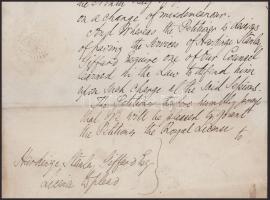 on a charge of misdemeanor.
And Whereas the Petitioner is desirous
of having the Services of Hardinge Stanley
Giffard Esquire one of Our Counsel
learned in the Law to defend him
upon such charge at the said Sessions.
The Petitioner therefore humbly prays
that We will be pleased to grant
the Petitioner the Royal License to
Hardinge Stanley Giffard Esq
License to plead